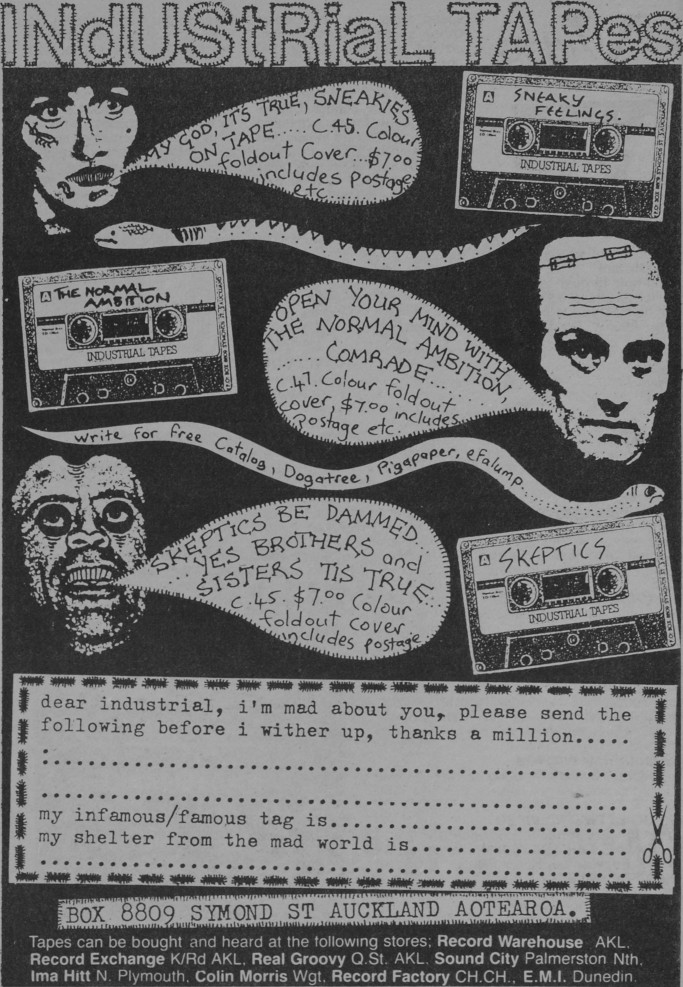 INdUStRiaL TAPes
MY GOD, IT'S TRUE, SNEAKIES
ON TAPE..... C.45. Colour
foldout Cover...$7.00
includes postage
etc....
A SNEAKY
FEELINGS.
INDUSTRIAL TAPES
A THE NORMAL
AMBITION
INDUSTRIAL TAPES
OPEN YOUR MIND WITH
THE NORMAL AMBITION,
...... COMRADE....
C.47. Colour foldout
cover, $7.00 includes
Postage etc.
write for free Catalog, Dogatree, Pigapaper, efalump......
SKEPTICS BE DAMMED..
...YES BROTHERS and
SISTERS TIS TRUE...
C.45. $7.00 Colour
foldout cover
includes postage
A SKEPTICS
INDUSTRIAL TAPES
dear industrial, i'm mad about you, please send the
following before i wither up, thanks a million.....
my infamous/famous tag is...........................
my shelter from the mad world is....................
BOX 8809 SYMOND ST AUCKLAND AOTEAROA.
Tapes can be bought and heard at the following stores; Record Warehouse AKL,
Record Exchange K/Rd AKL, Real Groovy Q.St. AKL. Sound City Palmerston Nth,
Ima Hitt N. Plymouth, Colin Morris Wgt, Record Factory CH.CH., E.M.I. Dunedin.